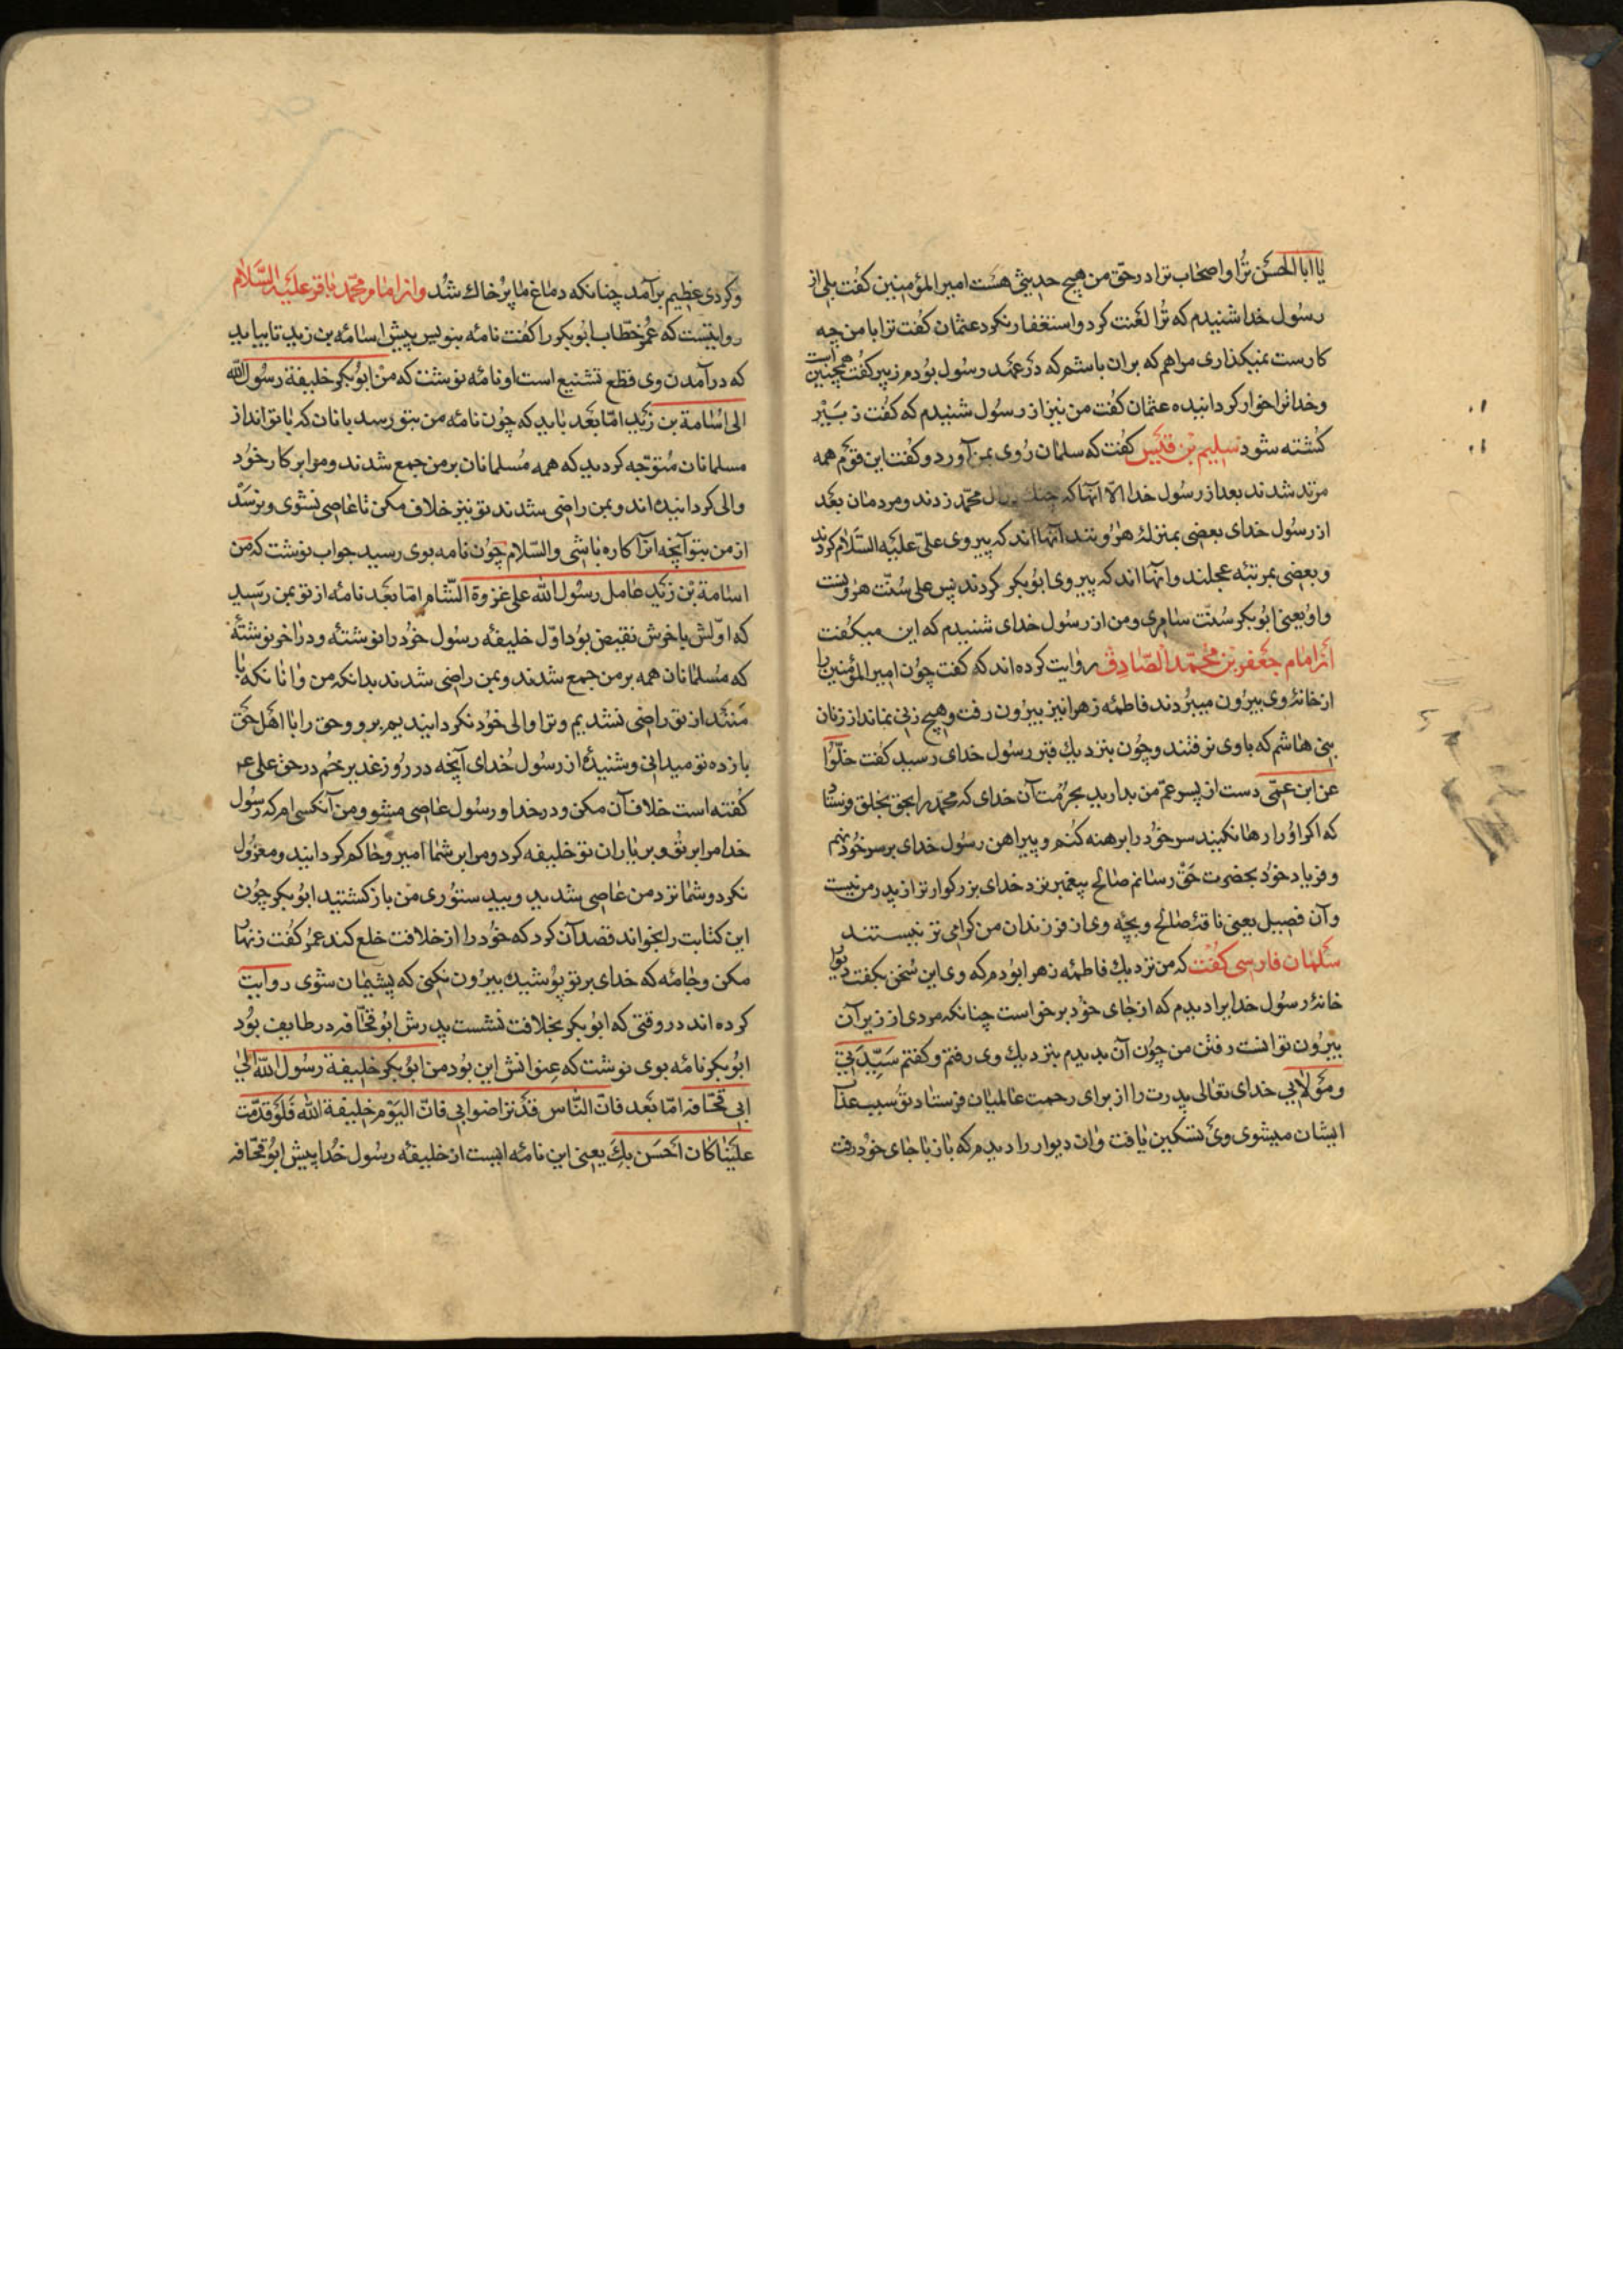 یا ابا الحسن ترا و اصحاب ترا در حق من هیچ حدیثی هست امیر المؤمنین کفت بلی از
رسول خدا شنیدم که ترا لعنت کرد و استغفار نکرد عثمان کفت ترا با من چه
کارست نمیکذاری مرا هم که بران باشم که در عهد رسول بودم زبیر کفت همچنین است
و خدا ترا خوار کرداننده عثمان کفت من نیز از رسول شنیدم که کفت زبیر
کشته شود سلیم بن قیس کفت که سلمان روی بمن آورد و کفت این قوم همه
مرتد شدند بعد از رسول خدا الا انها که چنك بال محمد زدند و مردمان بعد
از رسول خدای بعضی بمنزلهٔ هرونند انها اند که پیروی علی علیه السلام کردند
و بعضی بمرتبه عجلند و انها اند که پیروی ابوبکر کردند پس علی سنت هرونست
و او یعنی ابوبکر سنت سامری و من از رسول خدای شنیدم که این میکفت
از امام جعفر بن محمد الصادق روایت کرده اند که کفت چون امیر المؤمنین را
از خانهٔ وی بیرون میبردند فاطمه زهرا نیز بیرون رفت و هیچ زنی نماند از زنان
بنی هاشم که با وی نرفتند و چون بنزدیك قبر رسول خدای رسید کفت خلوا
عن ابن عمی دست از پسر عم من بدارید بحرمت آن خدای که محمد را بحق بخلق فرستاد
که اکر او را رها نکنید سر خود را برهنه کنم و پیراهن رسول خدای بر سر خود نهم
و فریاد خود بحضرت حق رسانم صالح پیغمبر نزد خدای بزرکوار تر از پدر من نیست
و آن فصیل یعنی ناقهٔ صالح و بچه وی از فرزندان من کرامی تر نیستند
سلمان فارسی کفت که من نزدیك فاطمه زهرا بودم که وی این سخن بکفت دیوار
خانهٔ رسول خدا برا دیدم که از جای خود برخواست چنانکه مردی از زیر آن
بیرون توانست رفتن من چون آن بدیدم بنزدیك وی رفتم و کفتم سیدتی
و مولاتی خدای تعالی پدرت را از برای رحمت عالمیان فرستاد تو سبب عذاب
ایشان میشوی وی تسکین یافت و ان دیوار را دیدم که باز با جای خود رفت
و کردی عظیم برآمد چنانکه دماغ ما پر خاك شد و از امام محمد باقر علیه السلام
روایتست که عمر خطاب ابوبکر را کفت نامه بنویس پیش اسامه بن زید تا بیاید
که در آمدن وی قطع تشنیع است او نامه نوشت که من ابوبکر خلیفة رسول الله
الی اسامة بن زید اما بعد باید که چون نامه من بتو رسد با نان که با تواند از
مسلمانان متوجه کردید که همه مسلمانان بر من جمع شدند و مرا بر کار خود
والی کردانیده اند و بمن راضی شدند تو نیز خلاف مکن تا عاصی نشوی و نرسد
از من بتو آنچه انرا کاره باشی والسلام چون نامه بوی رسید جواب نوشت که من
اسامة بن زید عامل رسول الله علی غزوة الشام اما بعد نامه از تو بمن رسید
که اولش باخرش نقیض بود اول خلیفه رسول خود را نوشته و در آخر نوشتهٔ
که مسلمانان همه بر من جمع شدند و بمن راضی شدند بدانکه من و انانکه با
منند از تو راضی نشدیم و ترا والی خود نکردانیدیم برو و حق را با اهل حق
بازده تو میدانی و شنیدهٔ از رسول خدای آنچه در روز غدیر خم در حق علی ع‍م
کفته است خلاف آن مکن و در خدا و رسول عاصی مشو و من آنکسی ام که رسول
خدا مرا بر تو و بر یاران تو خلیفه کرد و مرا بر شما امیر و حاکم کردانید و معزول
نکرد و شما نزد من عاصی شدید و بید ستوری من بازکشتید ابوبکر چون
این کتابت را بخواند قصد آن کرد که خود را از خلافت خلع کند عمر کفت زنهار
مکن و جامه که خدای بر تو پوشید بیرون نکنی که پشیمان شوی روایت
کرده اند در وقتی که ابوبکر بخلافت نشست پدرش ابو قحافه در طایف بود
ابوبکر نامه بوی نوشت که عنوانش این بود من ابوبکر خلیفة رسول الله الی
ابی قحافه اما بعد فان الناس قد تراضوا بی فان الیوم خلیفة الله فلو قدمت
علینا کان احسن بك یعنی این نامه ایست از خلیفه رسول خدا پیش ابو قحافه